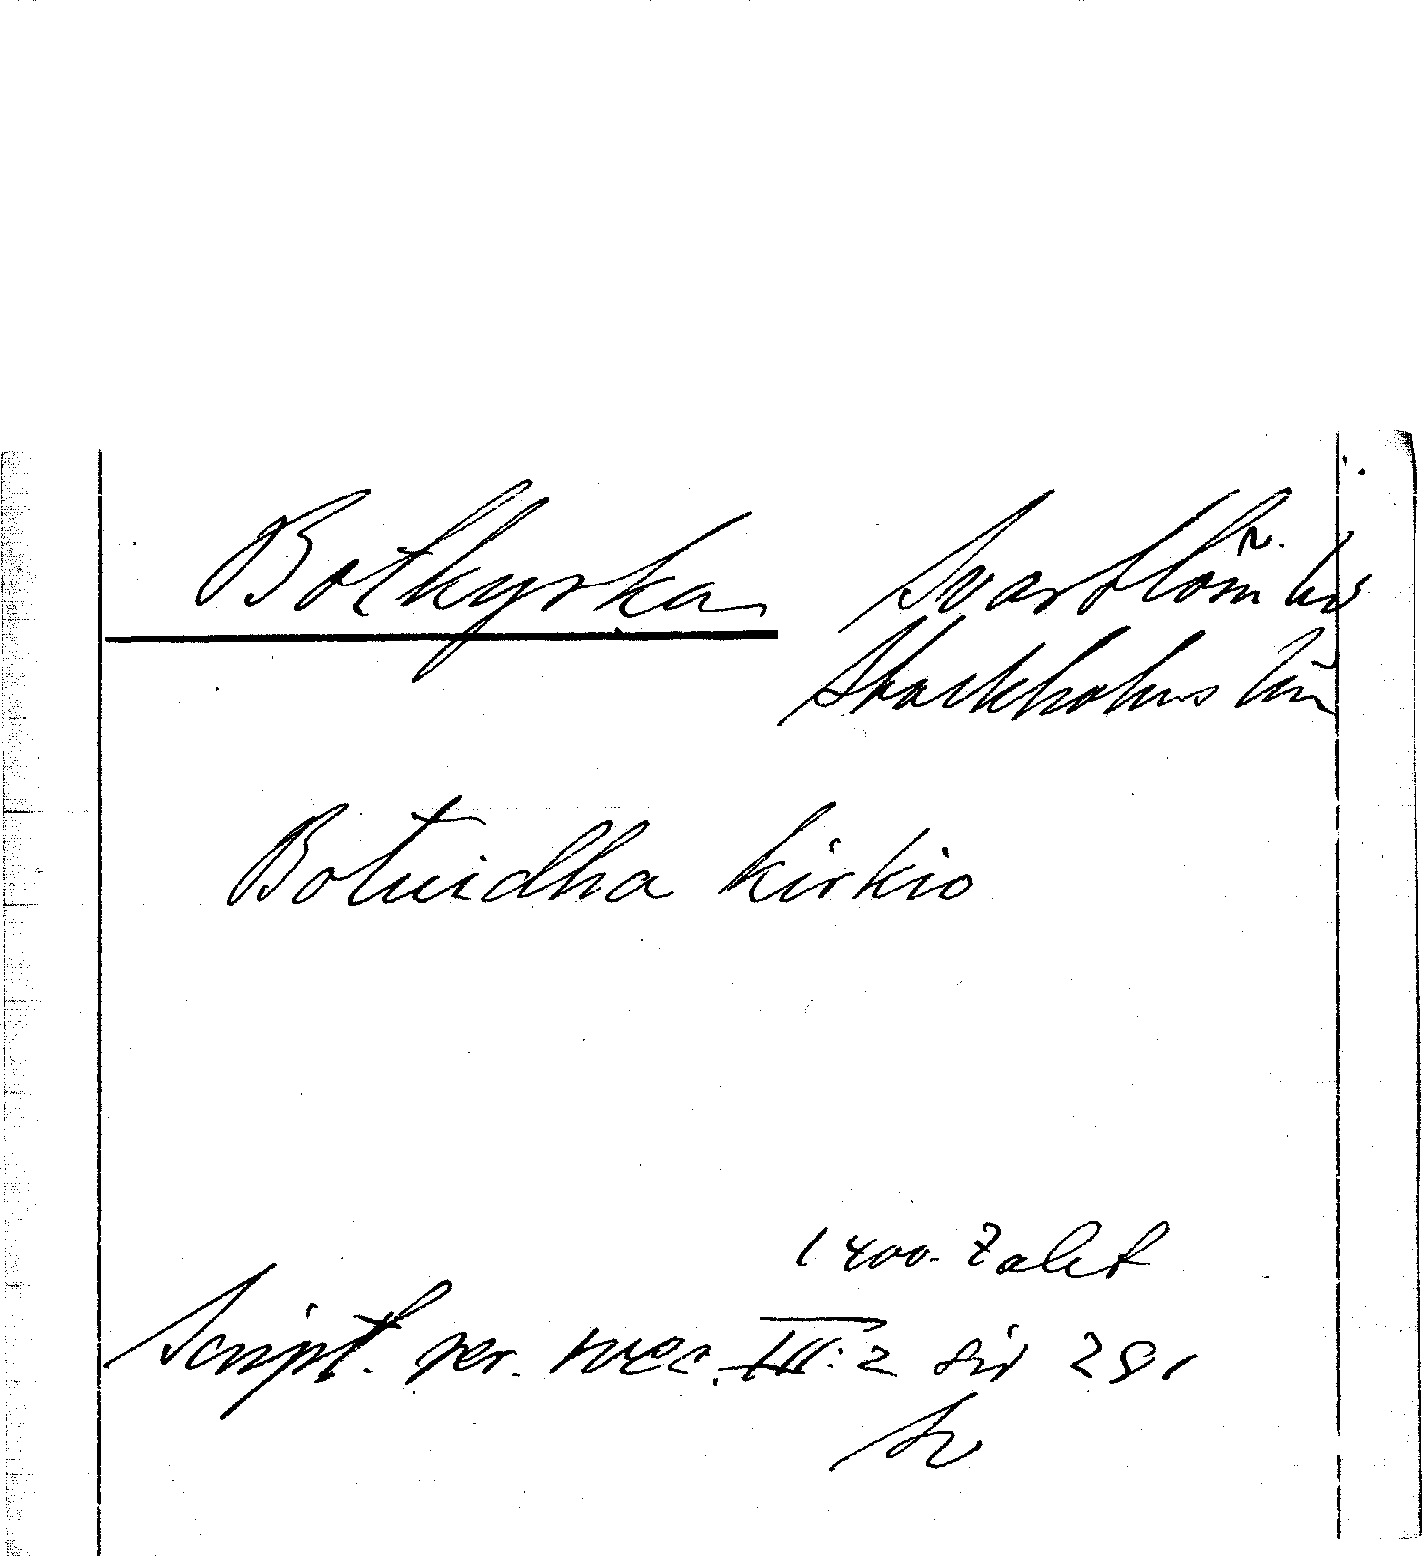 Botkyrka Svartlösa hds
Stockholms län
Botuidha kirkio
1400-talet
Script. rer. svec. III:2 sid 281